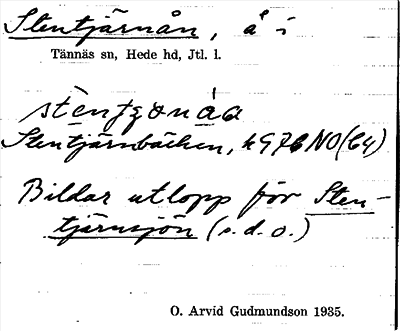 Stentjärnån, å i
Tännäs sn, Hede hd, Jtl. l.
Stentjärnbäcken,
Bildar utlopp för Sten-
tjärnsjön (s.d.o.)
O. Arvid Gudmundson 1935.